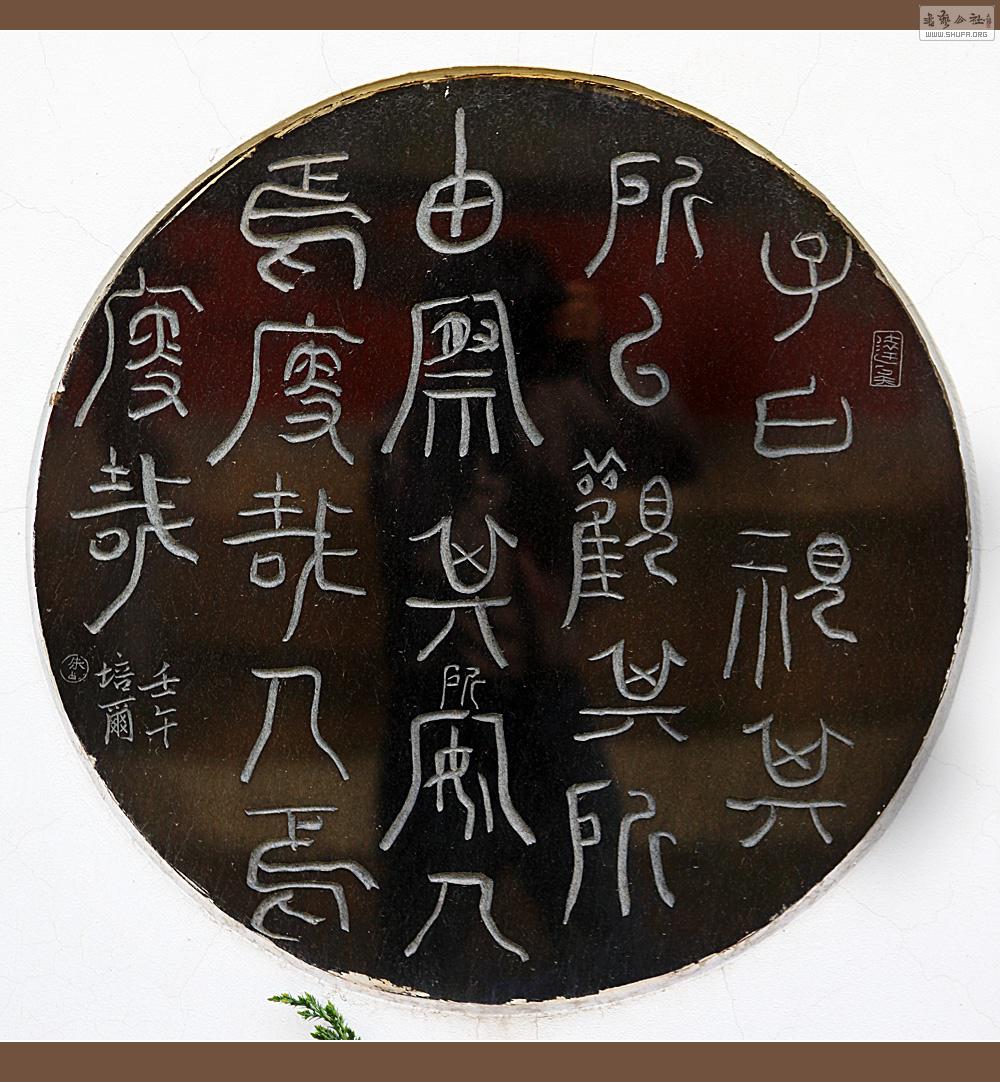 子曰視其
所以觀其所
由察其所安人
焉廋哉人焉
廋哉
壬午
培爾
WWW.SHUFA.ORG